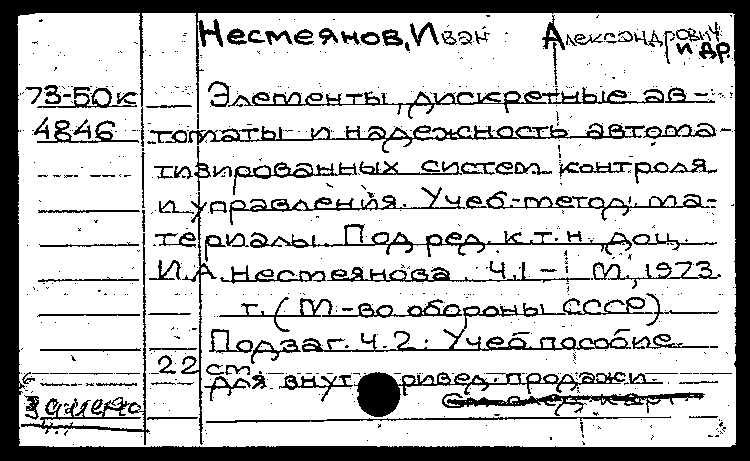 Нестеянов, Иван Александрович
и др.
73-50к Элементы, дискретные ав-
4846 томаты и надежность автома-
тизированных систем контроля
и управления. Учеб.-метод. ма-
териалы. Под ред. к.т.н., доц.
И.А. Нестеянова. Ч.1 - М., 1973.
т. (М-во обороны СССР).
Подзаг. Ч.2: Учеб. пособие
22 см.
для внут ривед. продажи.
Замено
ч.1
См. след. карт